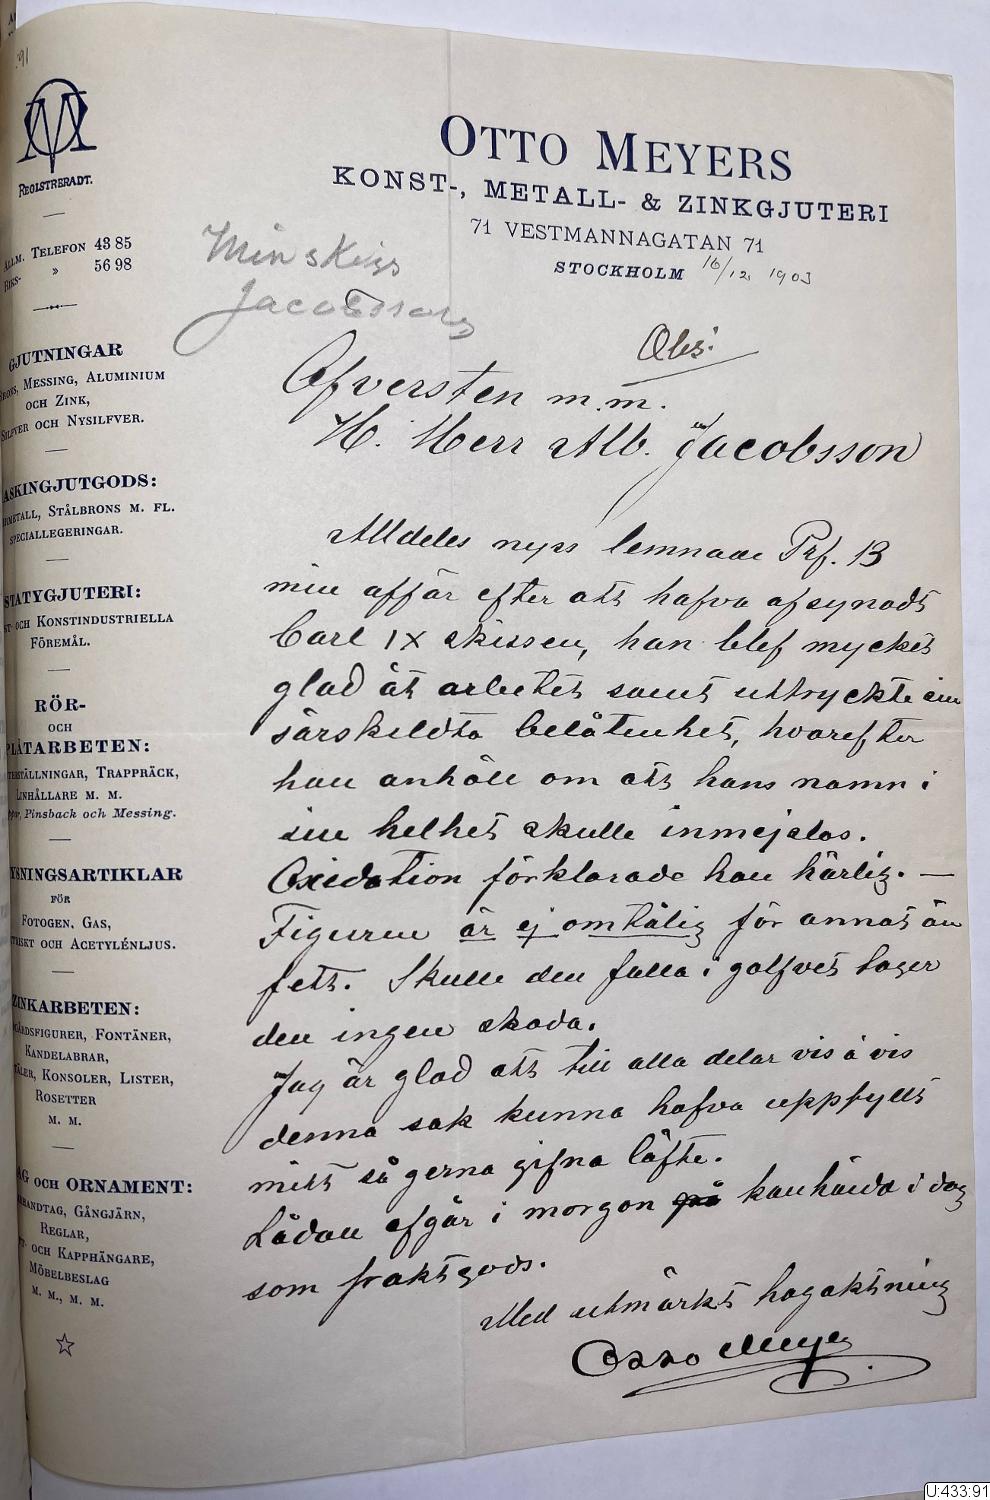 91
OM
REGISTRERADT.
ALLM. TELEFON 43 85
RIKS- » 56 98
GJUTNINGAR
BRONS, MESSING, ALUMINIUM
OCH ZINK,
SILFVER OCH NYSILFVER.
MASKINGJUTGODS:
STÅLBRONS M. FL.
SPECIALLEGERINGAR.
STATYGJUTERI:
KONST- OCH KONSTINDUSTRIELLA
FÖREMÅL.
RÖR-
OCH
PLÅTARBETEN:
TRAPPRÄCK,
LINHÅLLARE M. M.
Pinsback och Messing.
LYSNINGSARTIKLAR
FÖR
FOTOGEN, GAS,
ELEKTRISKT OCH ACETYLÉNLJUS.
ZINKARBETEN:
TRÄDGÅRDSFIGURER, FONTÄNER,
KANDELABRAR,
KONSOLER, LISTER,
ROSETTER
M. M.
OCH ORNAMENT:
HANDTAG, GÅNGJÄRN,
REGLAR,
OCH KAPPHÄNGARE,
MÖBELBESLAG
M. M., M. M.
OTTO MEYERS
KONST-, METALL- & ZINKGJUTERI
71 VESTMANNAGATAN 71
STOCKHOLM 16/12 1903
Min skiss
Jacobsson
Obs!
Öfversten m. m.
H. Herr Alb. Jacobsson
Alldeles nyss lemnade Prf. B
min affär efter att hafva afsynadt
Carl IX skissen, han blef mycket
glad åt arbetet samt uttryckte sin
särskildta belåtenhet, hvarefter
han anhöll om att hans namn i
sin helhet skulle inmejslas.
Oxidation förklarade han härlig. —
Figuren är ej omtålig för annat än
fett. Skulle den falla i golfvet tager
den ingen skada.
Jag är glad att till alla delar vis à vis
denna sak kunna hafva uppfyllt
mitt så gerna gifna löfte.
Lådan afgår i morgon på kanhända i dag
som fraktgods.
Med utmärkt högaktning
Otto Meyer
U:433:91